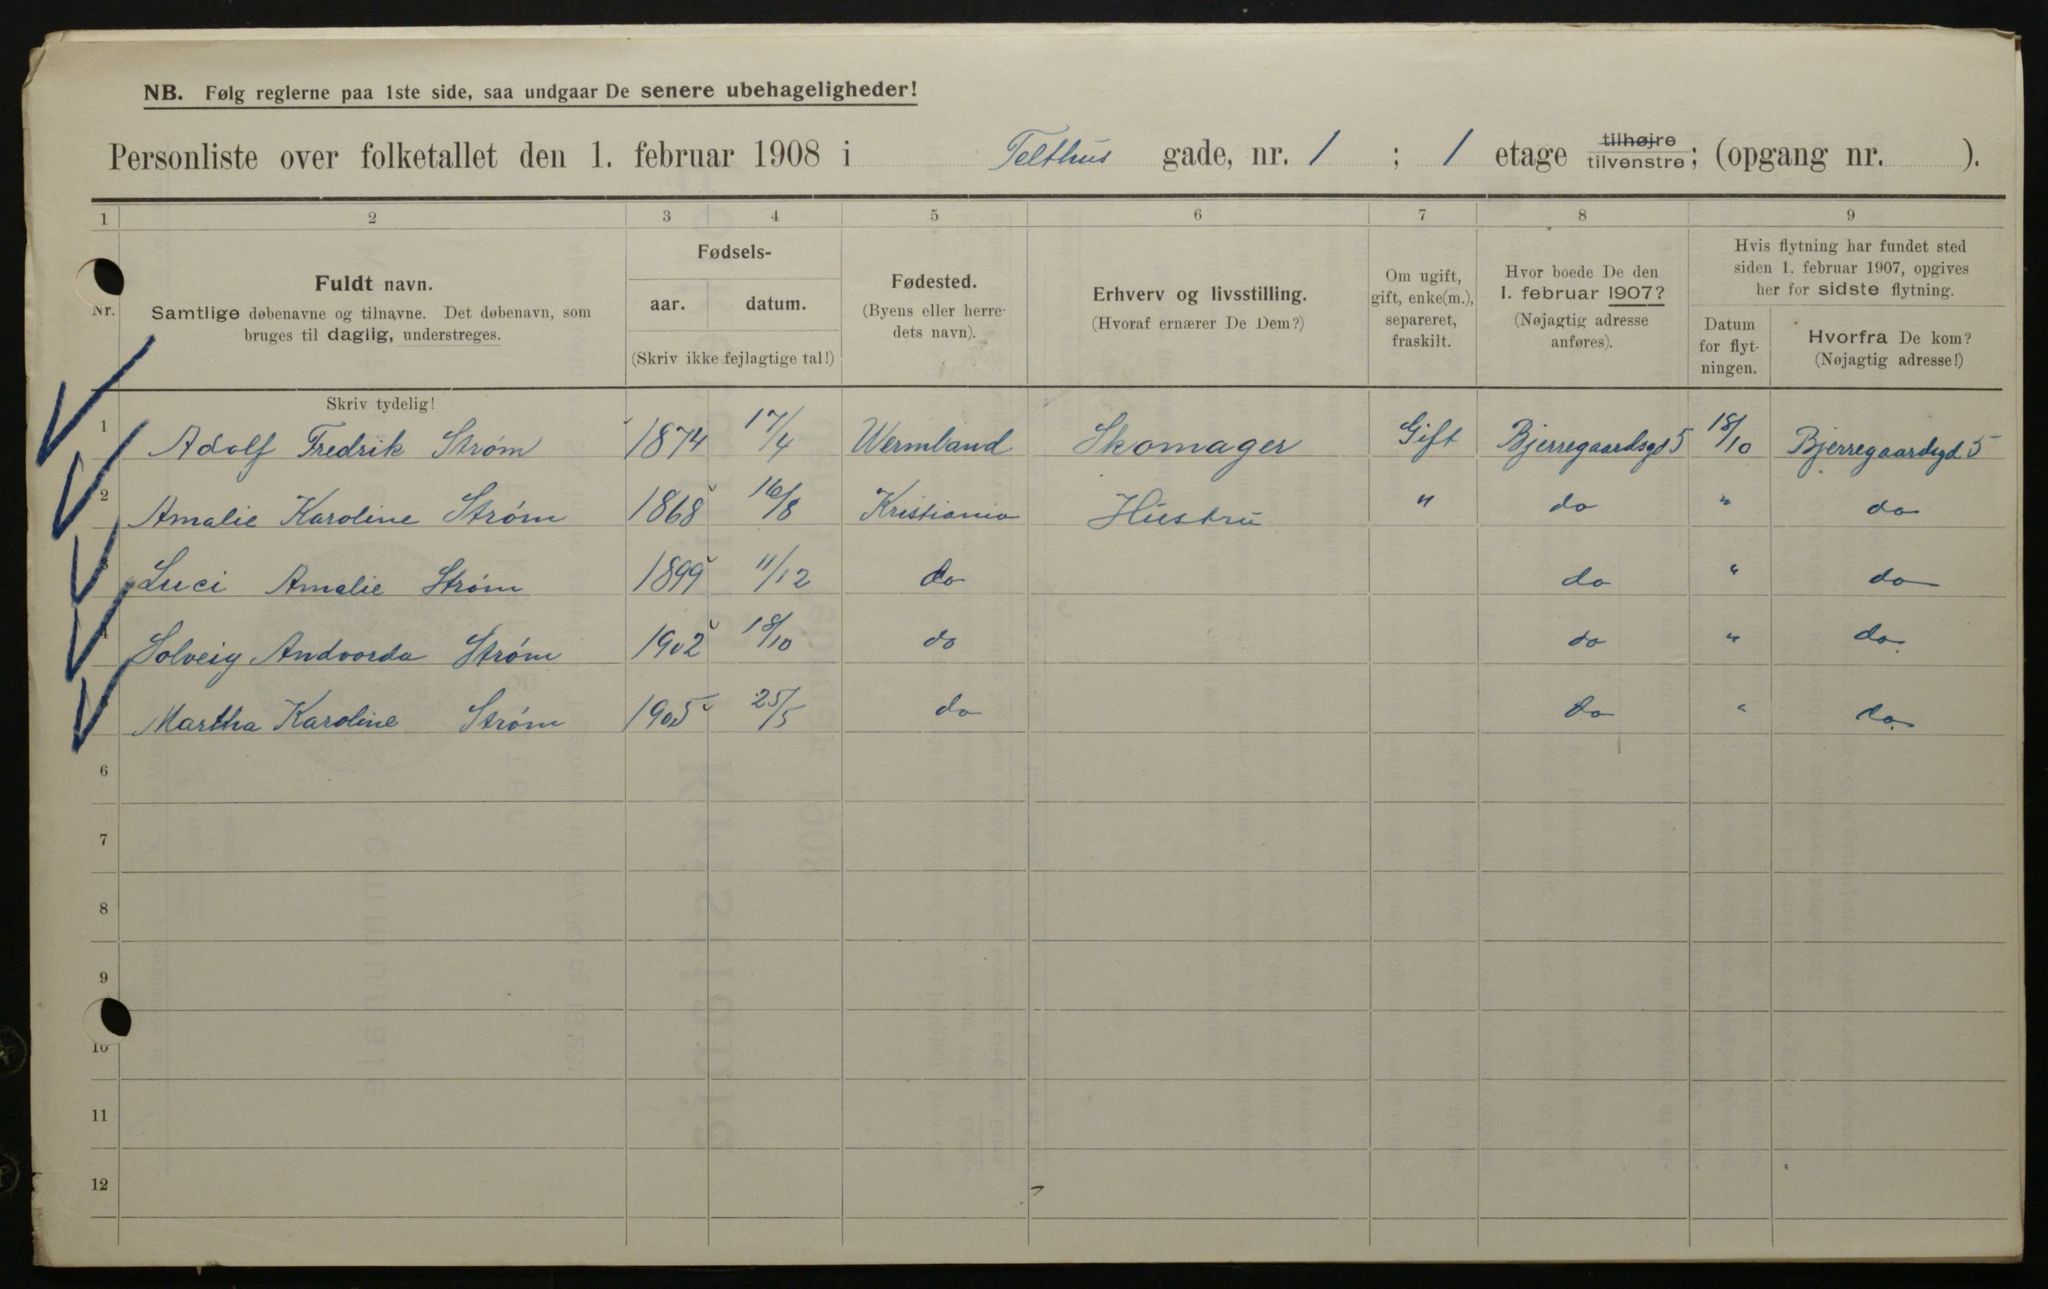 NB. Følg reglerne paa 1ste side, saa undgaar De senere ubehageligheder!
Personliste over folketallet den 1. februar 1908 i Telthus gade, nr. 1 ; 1 etage tilhøjre tilvenstre; (opgang nr. ).
1 2 3 4 5 6 7 8 9
Nr.
Fuldt navn.
Samtlige døbenavne og tilnavne. Det døbenavn, som
bruges til daglig, understreges.
Skriv tydelig!
Fødsels-
aar. datum.
(Skriv ikke fejlagtige tal!)
Fødested.
(Byens eller herre-
dets navn).
Erhverv og livsstilling.
(Hvoraf ernærer De Dem?)
Om ugift,
gift, enke(m.),
separeret,
fraskilt.
Hvor boede De den
1. februar 1907?
(Nøjagtig adresse
anføres).
Hvis flytning har fundet sted
siden 1. februar 1907, opgives
her for sidste flytning.
Datum
for flyt-
ningen.
Hvorfra De kom?
(Nøjagtig adresse!)
1 Adolf Fredrik Strøm 1874 17/4 Wermland Skomager Gift Bjerregaardsgd 5 18/10 Bjerregaardsgd 5
2 Amalie Karoline Strøm 1868 16/8 Kristiania Hustru " do " do
3 Luci Amalie Strøm 1899 11/12 do do " do
4 Solveig Andvorda Strøm 1902 18/10 do do " do.
Martha Karoline Strøm 1905 25/5 do do " do.
6
7
8
9
10
11
12